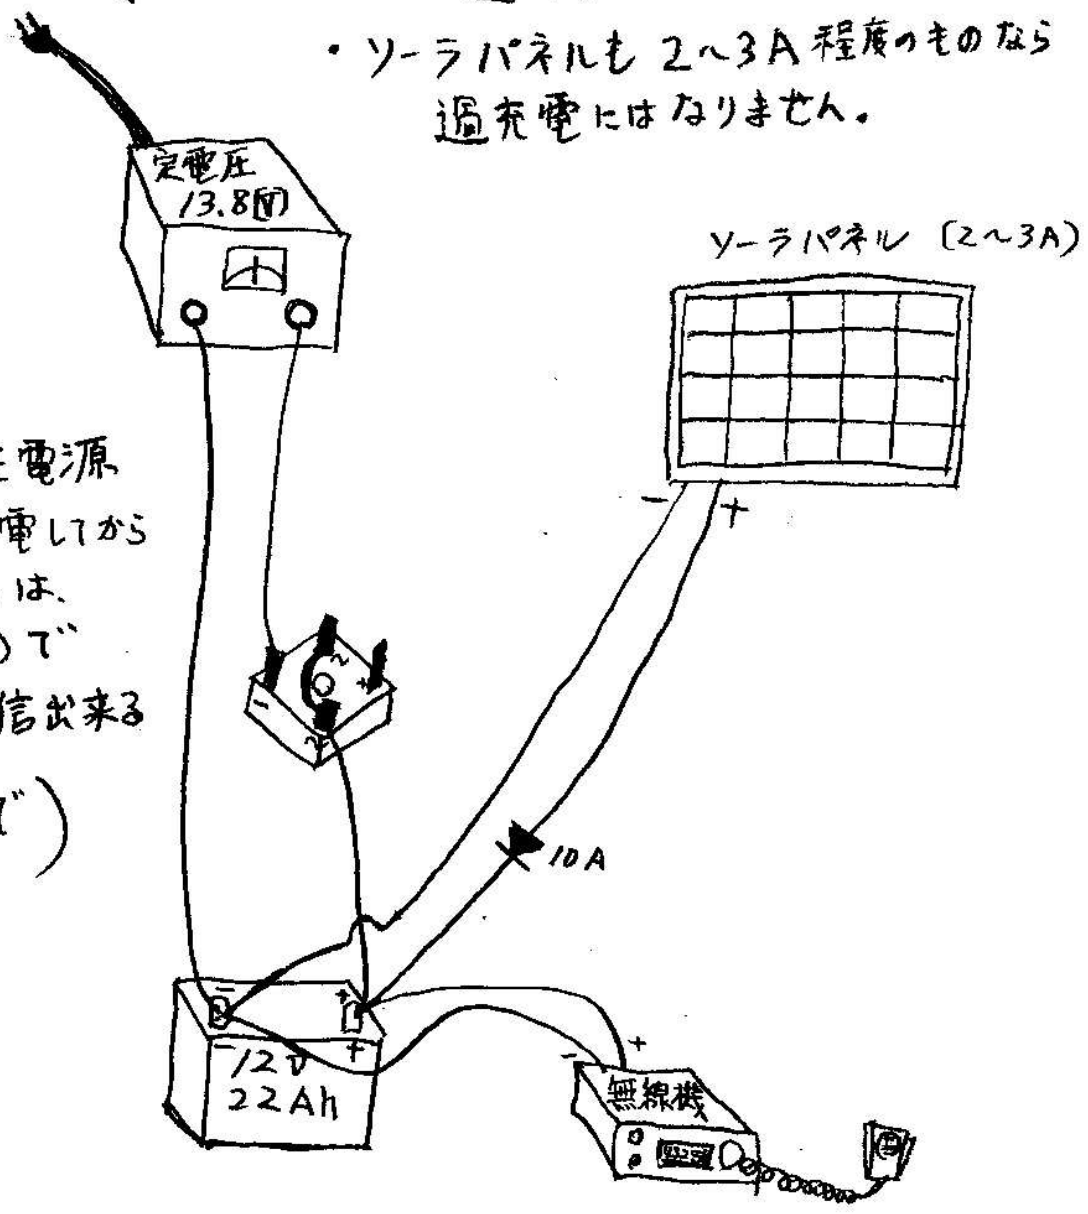 ・ソーラパネルも 2～3A 程度のものなら
過充電にはなりません。
定電圧
13.8[V]
ソーラパネル (2～3A)
電源
電してから
は、
で
信出来る
で)
- +
~
- +
~
10A
- +
- +
12V
22Ah
- +
無線機